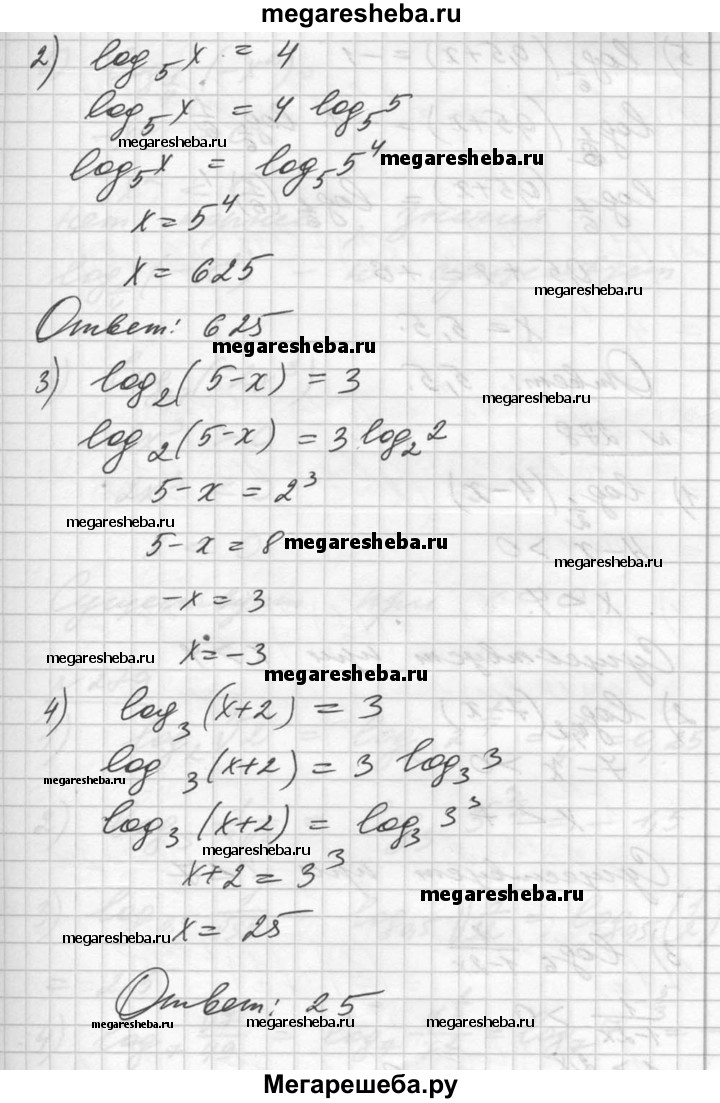 megaresheba.ru
2) log₅x = 4
log₅x = 4 log₅5
megaresheba.ru
log₅x = log₅5⁴ megaresheba.ru
x = 5⁴
megaresheba.ru
x = 625
megaresheba.ru
Ответ: 625
megaresheba.ru
3) log₂(5-x) = 3
megaresheba.ru
log₂(5-x) = 3 log₂2
5-x = 2³
megaresheba.ru
5-x = 8 megaresheba.ru
megaresheba.ru
-x = 3
megaresheba.ru x = -3
megaresheba.ru
4) log₃(x+2) = 3
megaresheba.ru log₃(x+2) = 3 log₃3
log₃(x+2) = log₃3³
megaresheba.ru
x+2 = 3³
megaresheba.ru
megaresheba.ru x = 25
Ответ: 25
megaresheba.ru megaresheba.ru megaresheba.ru
Мегарешеба.ру